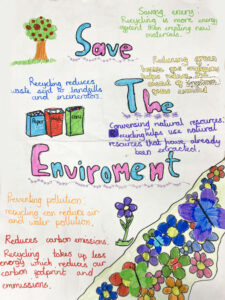 Saving enery:
Recycling is more energy
efficient than creating new
materials.
Save
Reducing green
house gas emissions
helps reduce the
Recycling reduces
waste sent to landfills
and incinerators.
The
Paper
Conversing natural resources:
recycling helps use natural
resources that have already
been extracted.
Enviroment
Preventing pollution:
recycling can reduce air
and water pollution.
Reduces carbon emissions.
Recycling takes up less
energy which reduces our
carbon footprint and
emmissions.